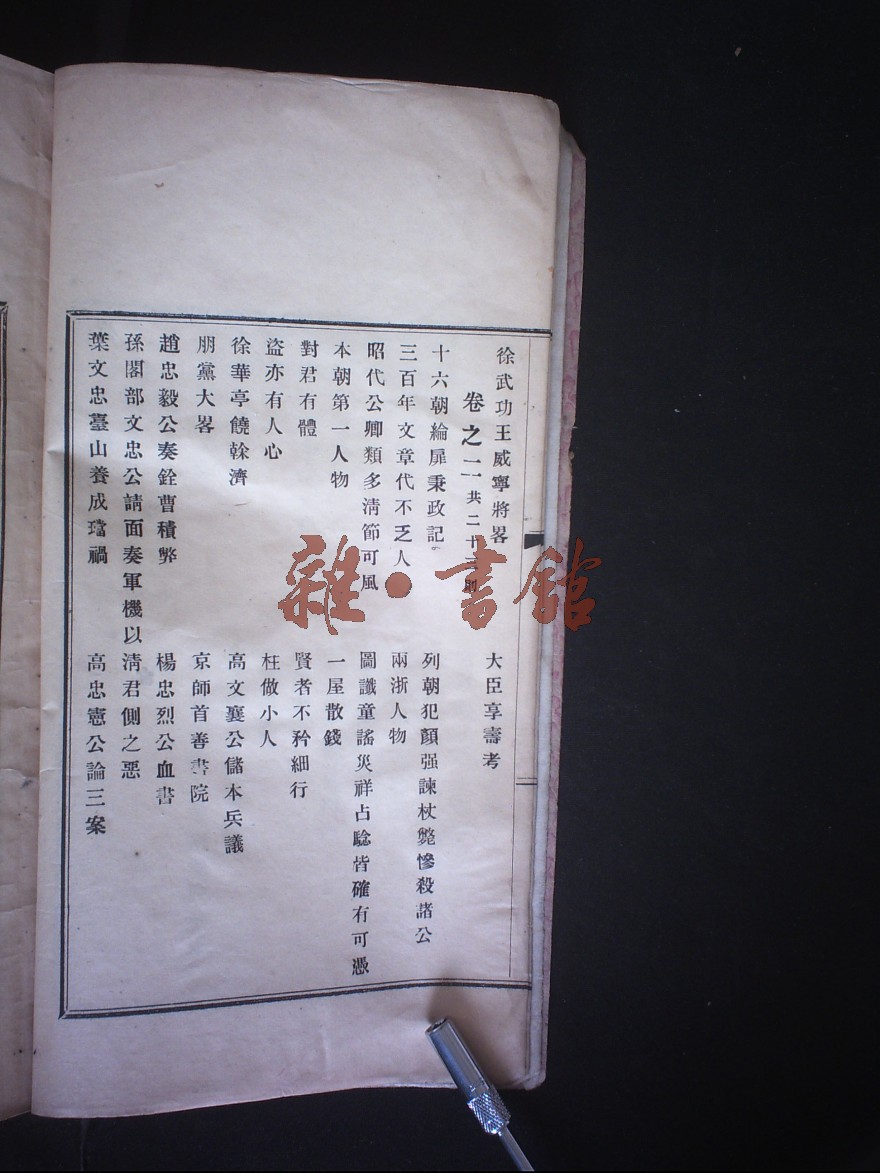 徐武功王威寧將畧　大臣享壽考
卷之二 共二十則
十六朝綸扉秉政記　列朝犯顏强諫杖斃慘殺諸公
三百年文章代不乏人　兩浙人物
昭代公卿類多淸節可風　圖讖童謠災祥占騐皆確有可憑
本朝第一人物　一屋散錢
對君有體　賢者不矜細行
盜亦有人心　枉做小人
徐華亭饒榦濟　高文襄公儲本兵議
朋黨大畧　京師首善書院
趙忠毅公奏銓曹積弊　楊忠烈公血書
孫閣部文忠公請面奏軍機以淸君側之惡
葉文忠臺山養成璫禍　高忠憲公論三案
雜·書館